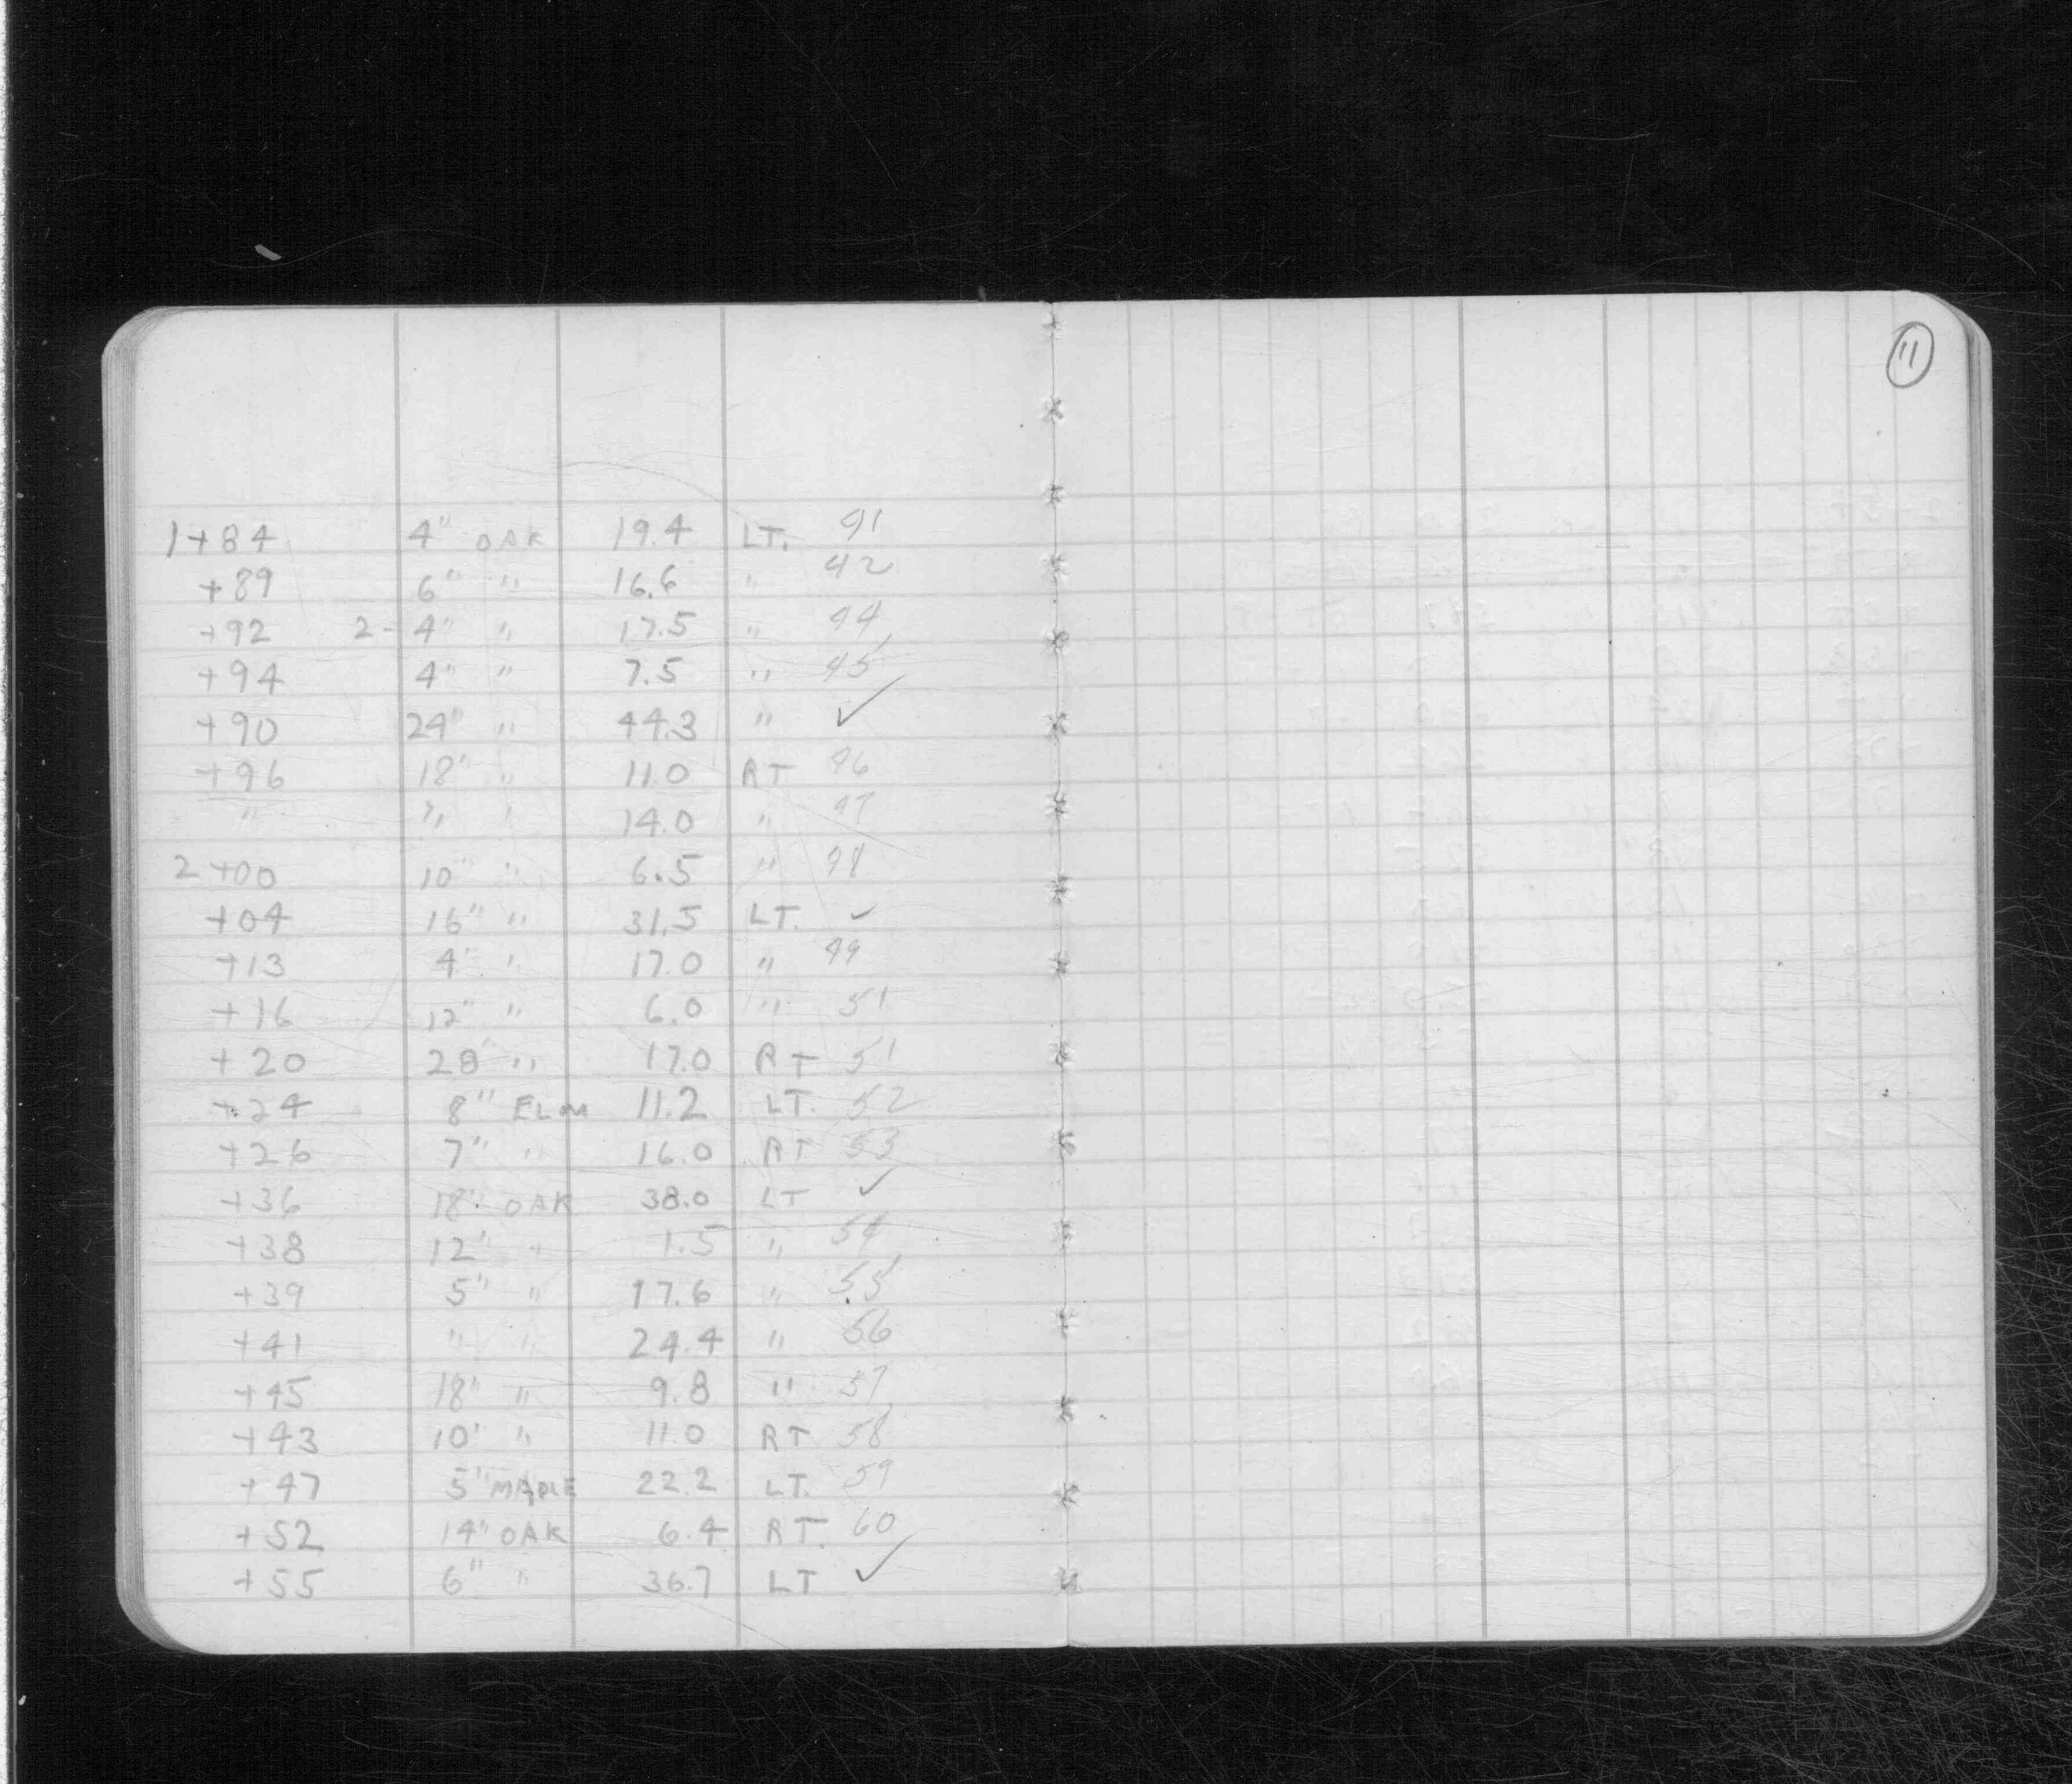 11
1+84 4" OAK 19.4 LT. 41
+89 6" " 16.6 " 42
+92 2- 4" " 17.5 " 44
+94 4" " 7.5 " 45
+90 24" " 44.3 " ✓
+96 18" " 11.0 RT 46
" " " 14.0 " 47
2+00 10" " 6.5 " 48
+04 16" " 31.5 LT. ✓
+13 4" " 17.0 " 49
+16 12" " 6.0 " 51
+20 28" " 17.0 RT 51
+24 8" ELM 11.2 LT. 52
+26 7" " 16.0 RT 53
+36 18" OAK 38.0 LT ✓
+38 12" " 1.5 " 54
+39 5" " 17.6 " 55
+41 " " 24.4 " 56
+45 18" " 9.8 " 57
+43 10" " 11.0 RT 58
+47 5" MAPLE 22.2 LT. 59
+52 14" OAK 6.4 RT. 60
+55 6" " 36.7 LT ✓